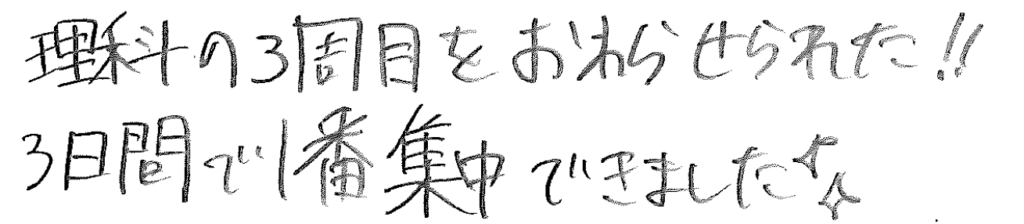 理科の3周目をおわらせられた!!
3日間で1番集中できました✨